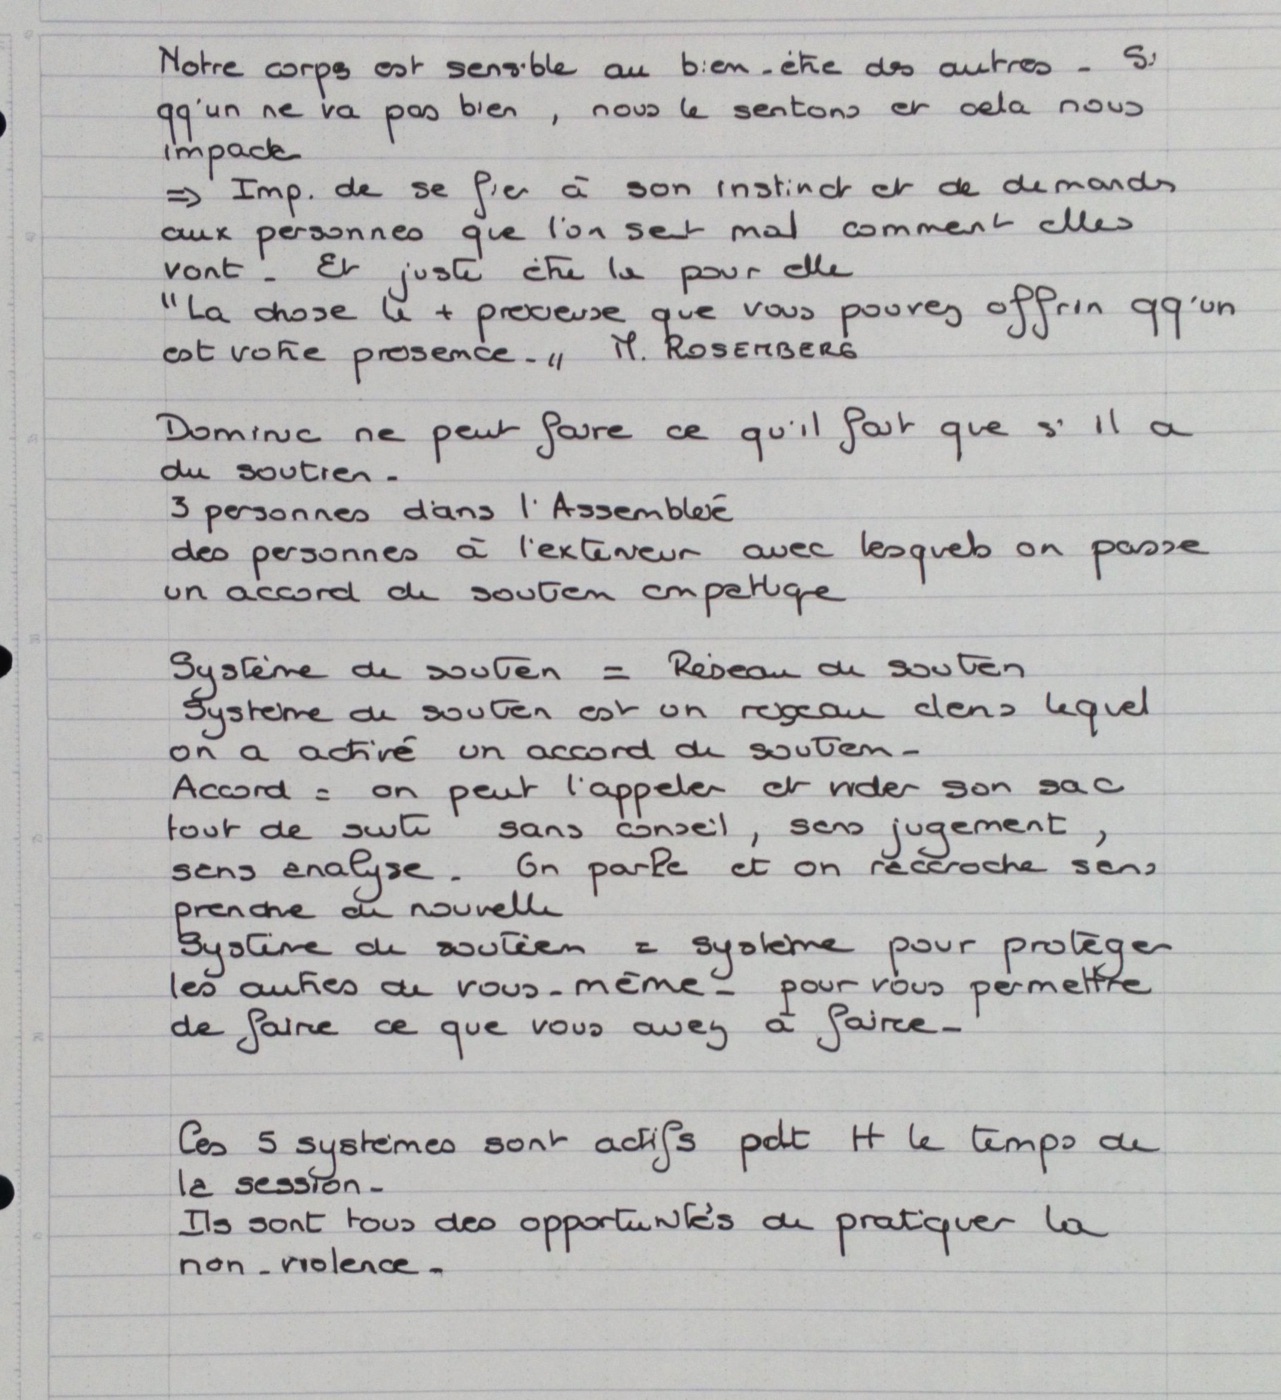 Notre corps est sensible au bien-être des autres - Si
qq'un ne va pas bien, nous le sentons et cela nous
impacte
=> Imp. de se fier à son instinct et de demander
aux personnes que l'on sent mal comment elles
vont - Et juste être là pour elle
"La chose la + precieuse que vous pouvez offrir qq'un
est votre presence." M. ROSEMBERG
Dominic ne peut faire ce qu'il fait que s'il a
du soutien -
3 personnes dans l'Assemblée
des personnes à l'exterieur avec lesquels on passe
un accord de soutien empathique
Système de soutien = Réseau de soutien
Système de soutien est un reseau dans lequel
on a activé un accord de soutien -
Accord = on peut l'appeler et vider son sac
tout de suite sans conseil, sans jugement,
sans analyse. On parle et on raccroche sans
prendre de nouvelle
Système de soutien = système pour protéger
les autres de vous-même - pour vous permettre
de faire ce que vous avez à faire -
Ces 5 systèmes sont actifs pdt tt le temps de
la session -
Ils sont tous des opportunités de pratiquer la
non-violence -